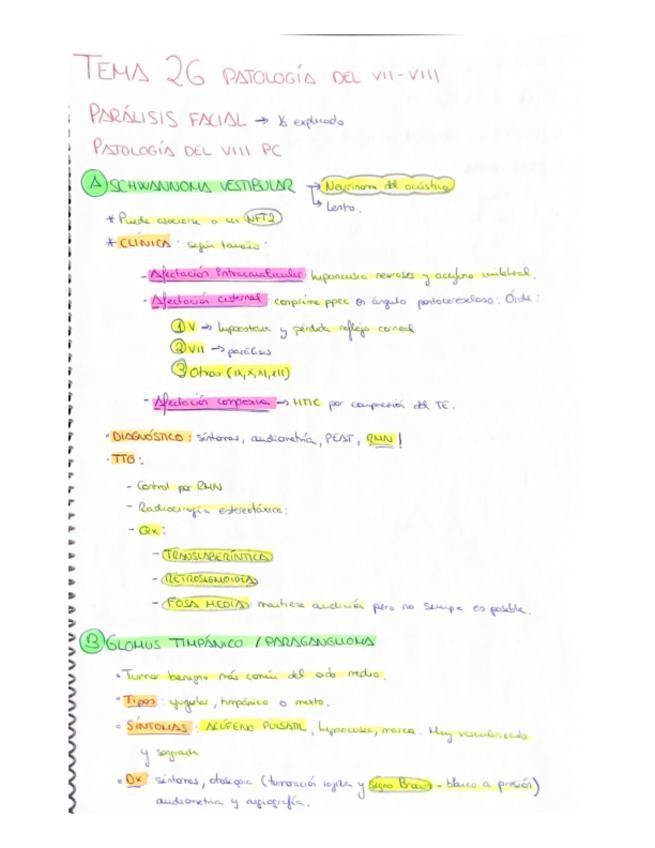 TEMA 26 PATOLOGÍA DEL VII-VIII
PARÁLISIS FACIAL → explicado
PATOLOGÍA DEL VIII PC
A SCHWANNOMA VESTIBULAR → Neurinoma del acústico
↳ Lento.
* Puede asociarse a un NFT2
* CLÍNICA: según tamaño:
- Afectación Intracanalicular hipoacusia neuroses y acúfeno unilateral.
- Afectación cisternal comprime ppec en ángulo pontocerebeloso: Orde:
1 V → hipoestesia y pérdida reflejo corneal
2 VII → parálisis
3 Otros (IX, X, XI, XII)
- Afectación compresiva → HTIC por compresión del TE.
· DIAGNÓSTICO: síntomas, audiometría, PEAT, RMN!
· TTO:
- Control por RMN
- Radiocirugía estereotáxica:
- Qx:
- TRANSLABERÍNTICA
- RETROSIGMOIDEA
- FOSA MEDIA: mantiene audición pero no siempre es posible.
B GLOMUS TIMPÁNICO / PARAGANGLIOMA
· Tumor benigno más común del oído medio.
· Tipos: yugular, timpánico o mixto.
· SÍNTOMAS: ACÚFENO PULSATIL, hipoacusia, mareo. Muy vascularizado
y sangrante
· Dx síntomas, otoscopia (tumoración rojiza y signo Brown - blanco a presión)
audiometría y angiografía.